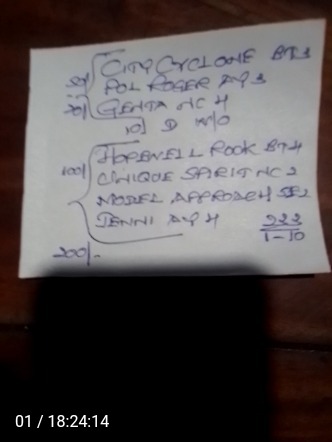 50/ CITY CYCLONE BT 3
POL ROGER AY 3
20/ GENTA NC 4
10/ D W/O
100/ HOPEWELL ROOK BT 4
UNIQUE SPIRIT NC 2
MODEL APPROACH SE 2
JENNI AY 4
222
1-10
200/-
01 / 18:24:14